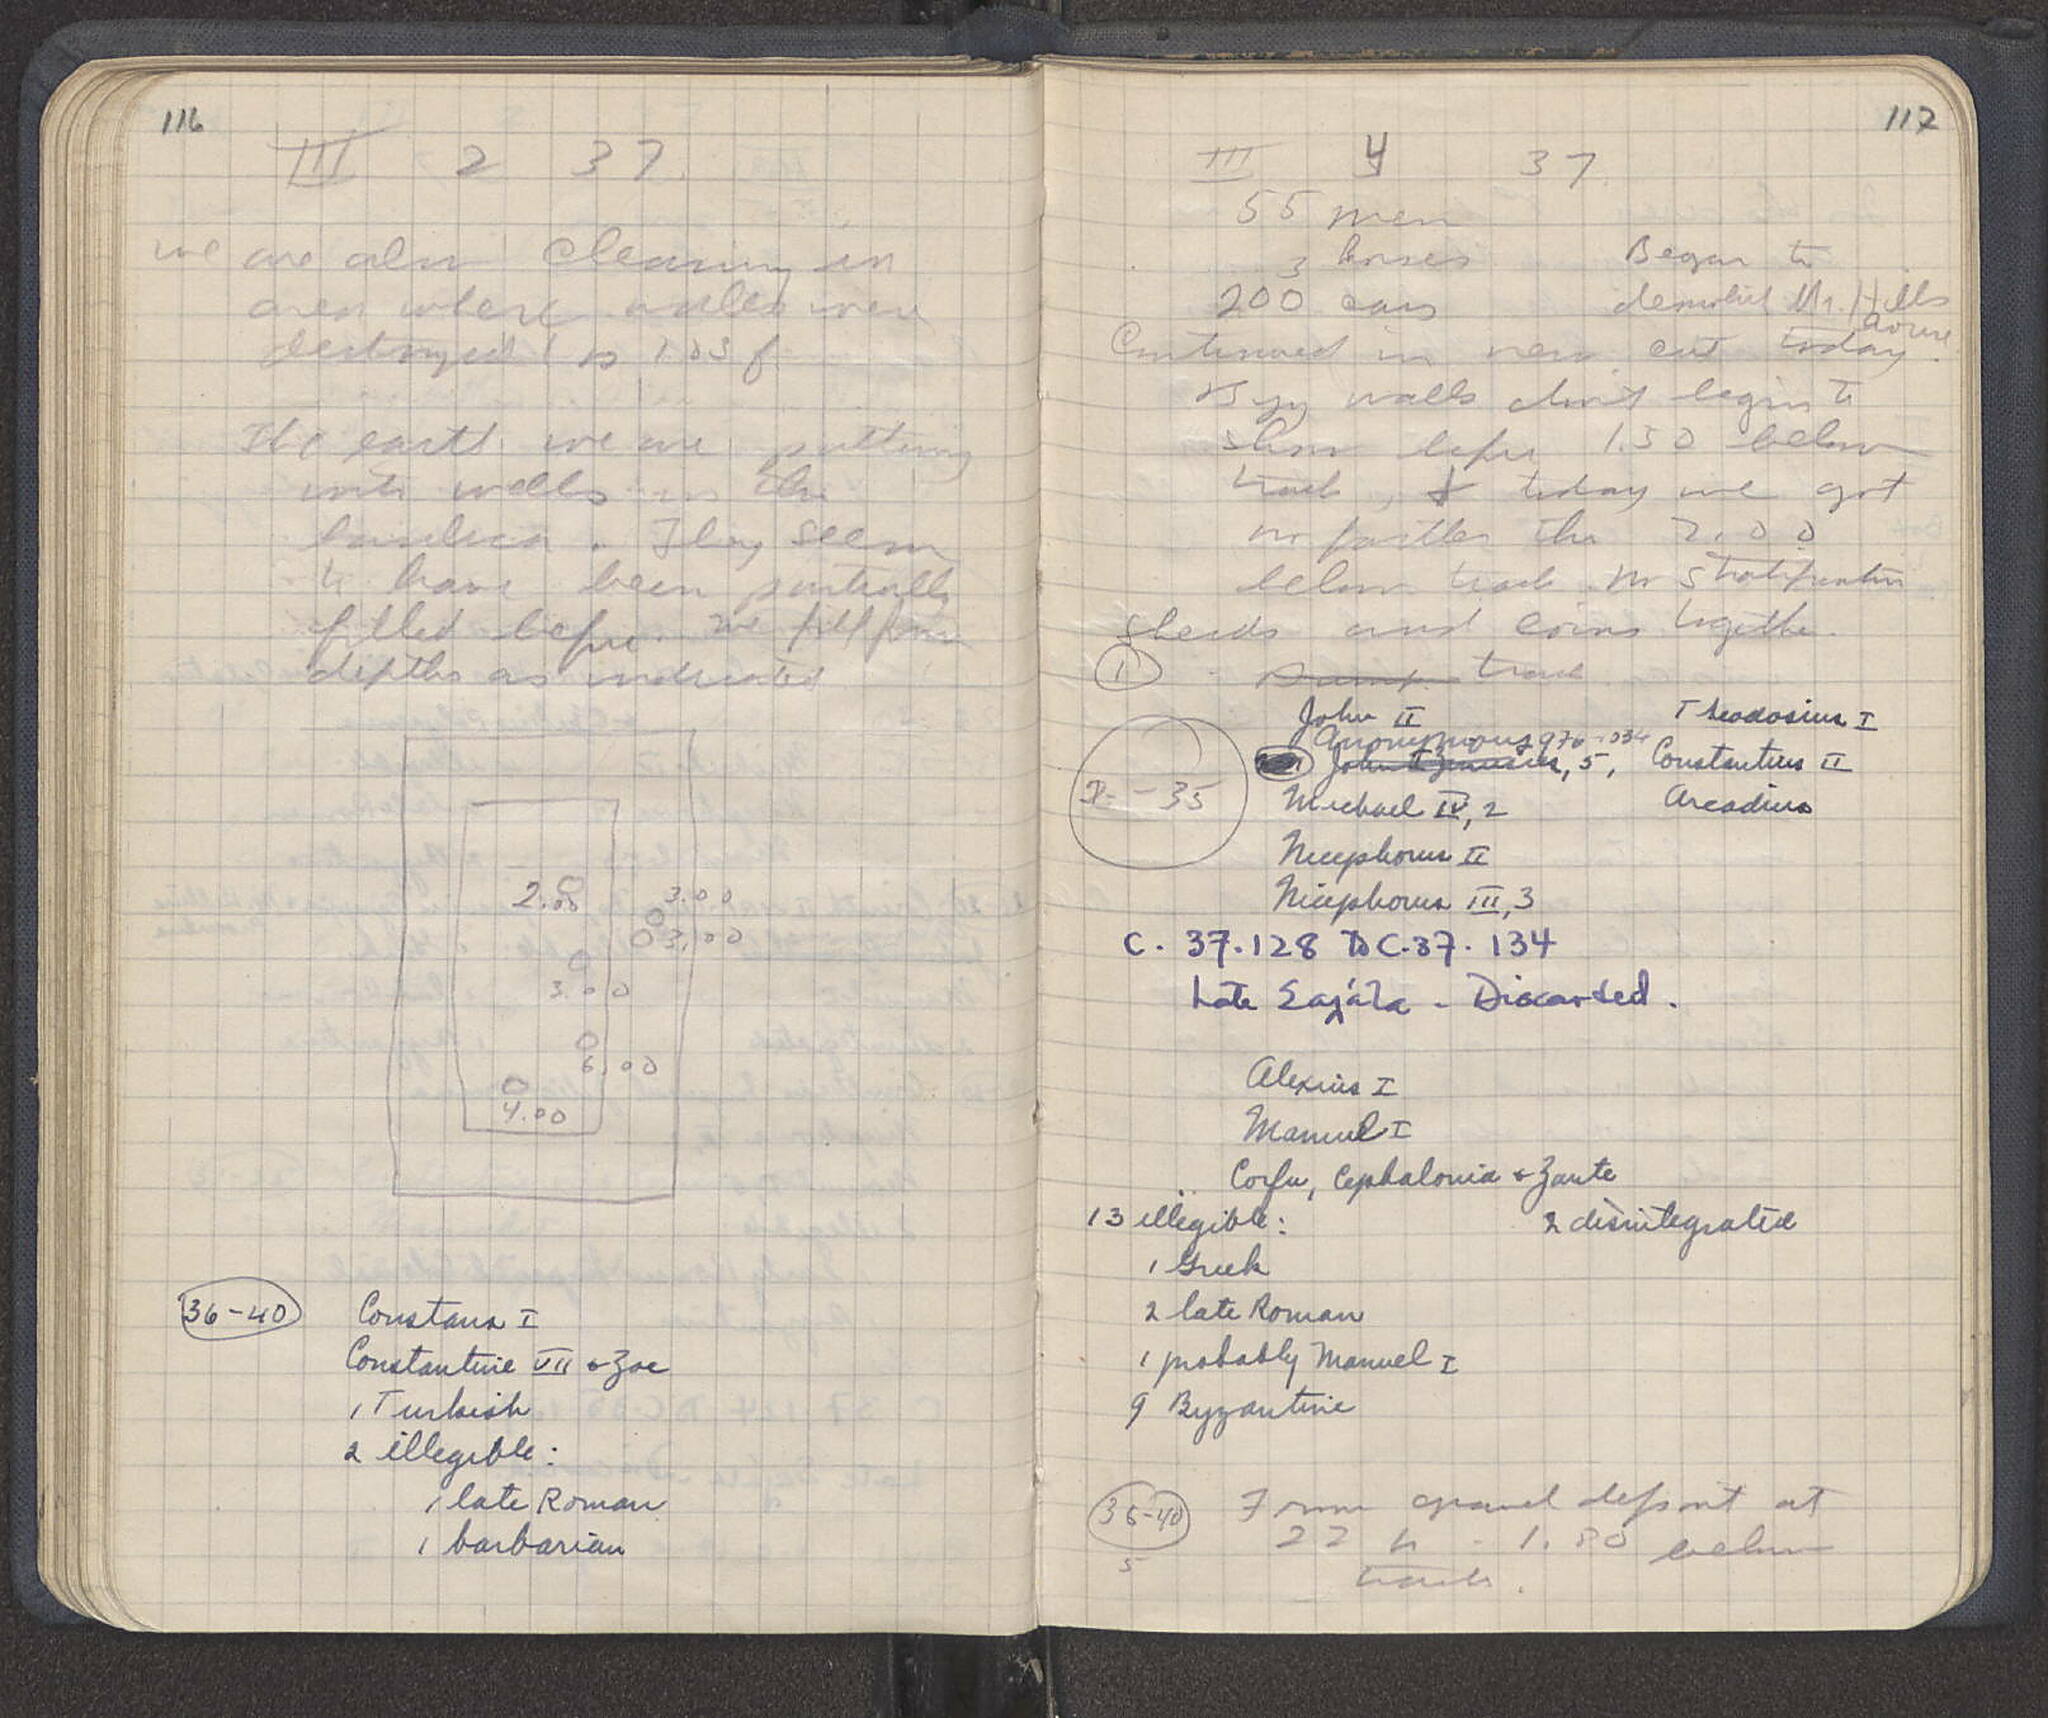 116
III 2 37.
we are also cleaning in
area where walls were
destroyed
The earth we are putting
into wells in the
basilica. They seem
to have been partially
filled before. We fill from
depths as indicated
2.00
3.00
3.00
3.00
6.00
4.00
36-40
Constans I
Constantine VII & Zoe
1 Turkish
2 illegible:
1 late Roman
1 barbarian
117
III 4 37.
55 men
3 horses
200 cars
Began to
demolish Mr. Hills
house
Continued in new cut today.
Byz walls don't begin to
show before 1.50 below
track, & today we got
no further than 2.00
below track. No stratification
Sherds and coins together.
1
Dump track
John II
Anonymous 976-1034
John I Zimisces, 5,
Michael IV, 2
Nicephorus II
Nicephorus III, 3
Theodosius I
Constantius II
Arcadius
1-35
C. 37.128 to C.37.134
Late - Discarded.
Alexius I
Manuel I
Corfu, Cephalonia & Zante
13 illegible:
2 disintegrated
1 Greek
2 late Roman
1 probably Manuel I
9 Byzantine
36-40
5
From gravel deposit at
22 h - 1.80 below
track.